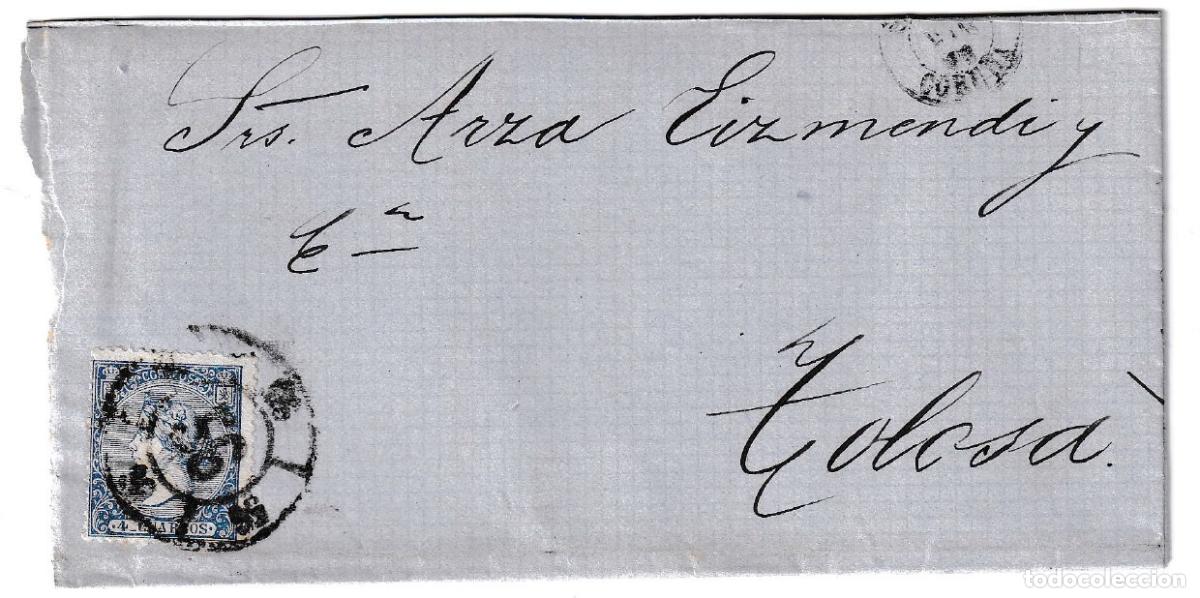 Srs. Arza Eizmendi y
Cª
Tolosa.
CORREOS
4 CUARTOS
todocoleccion